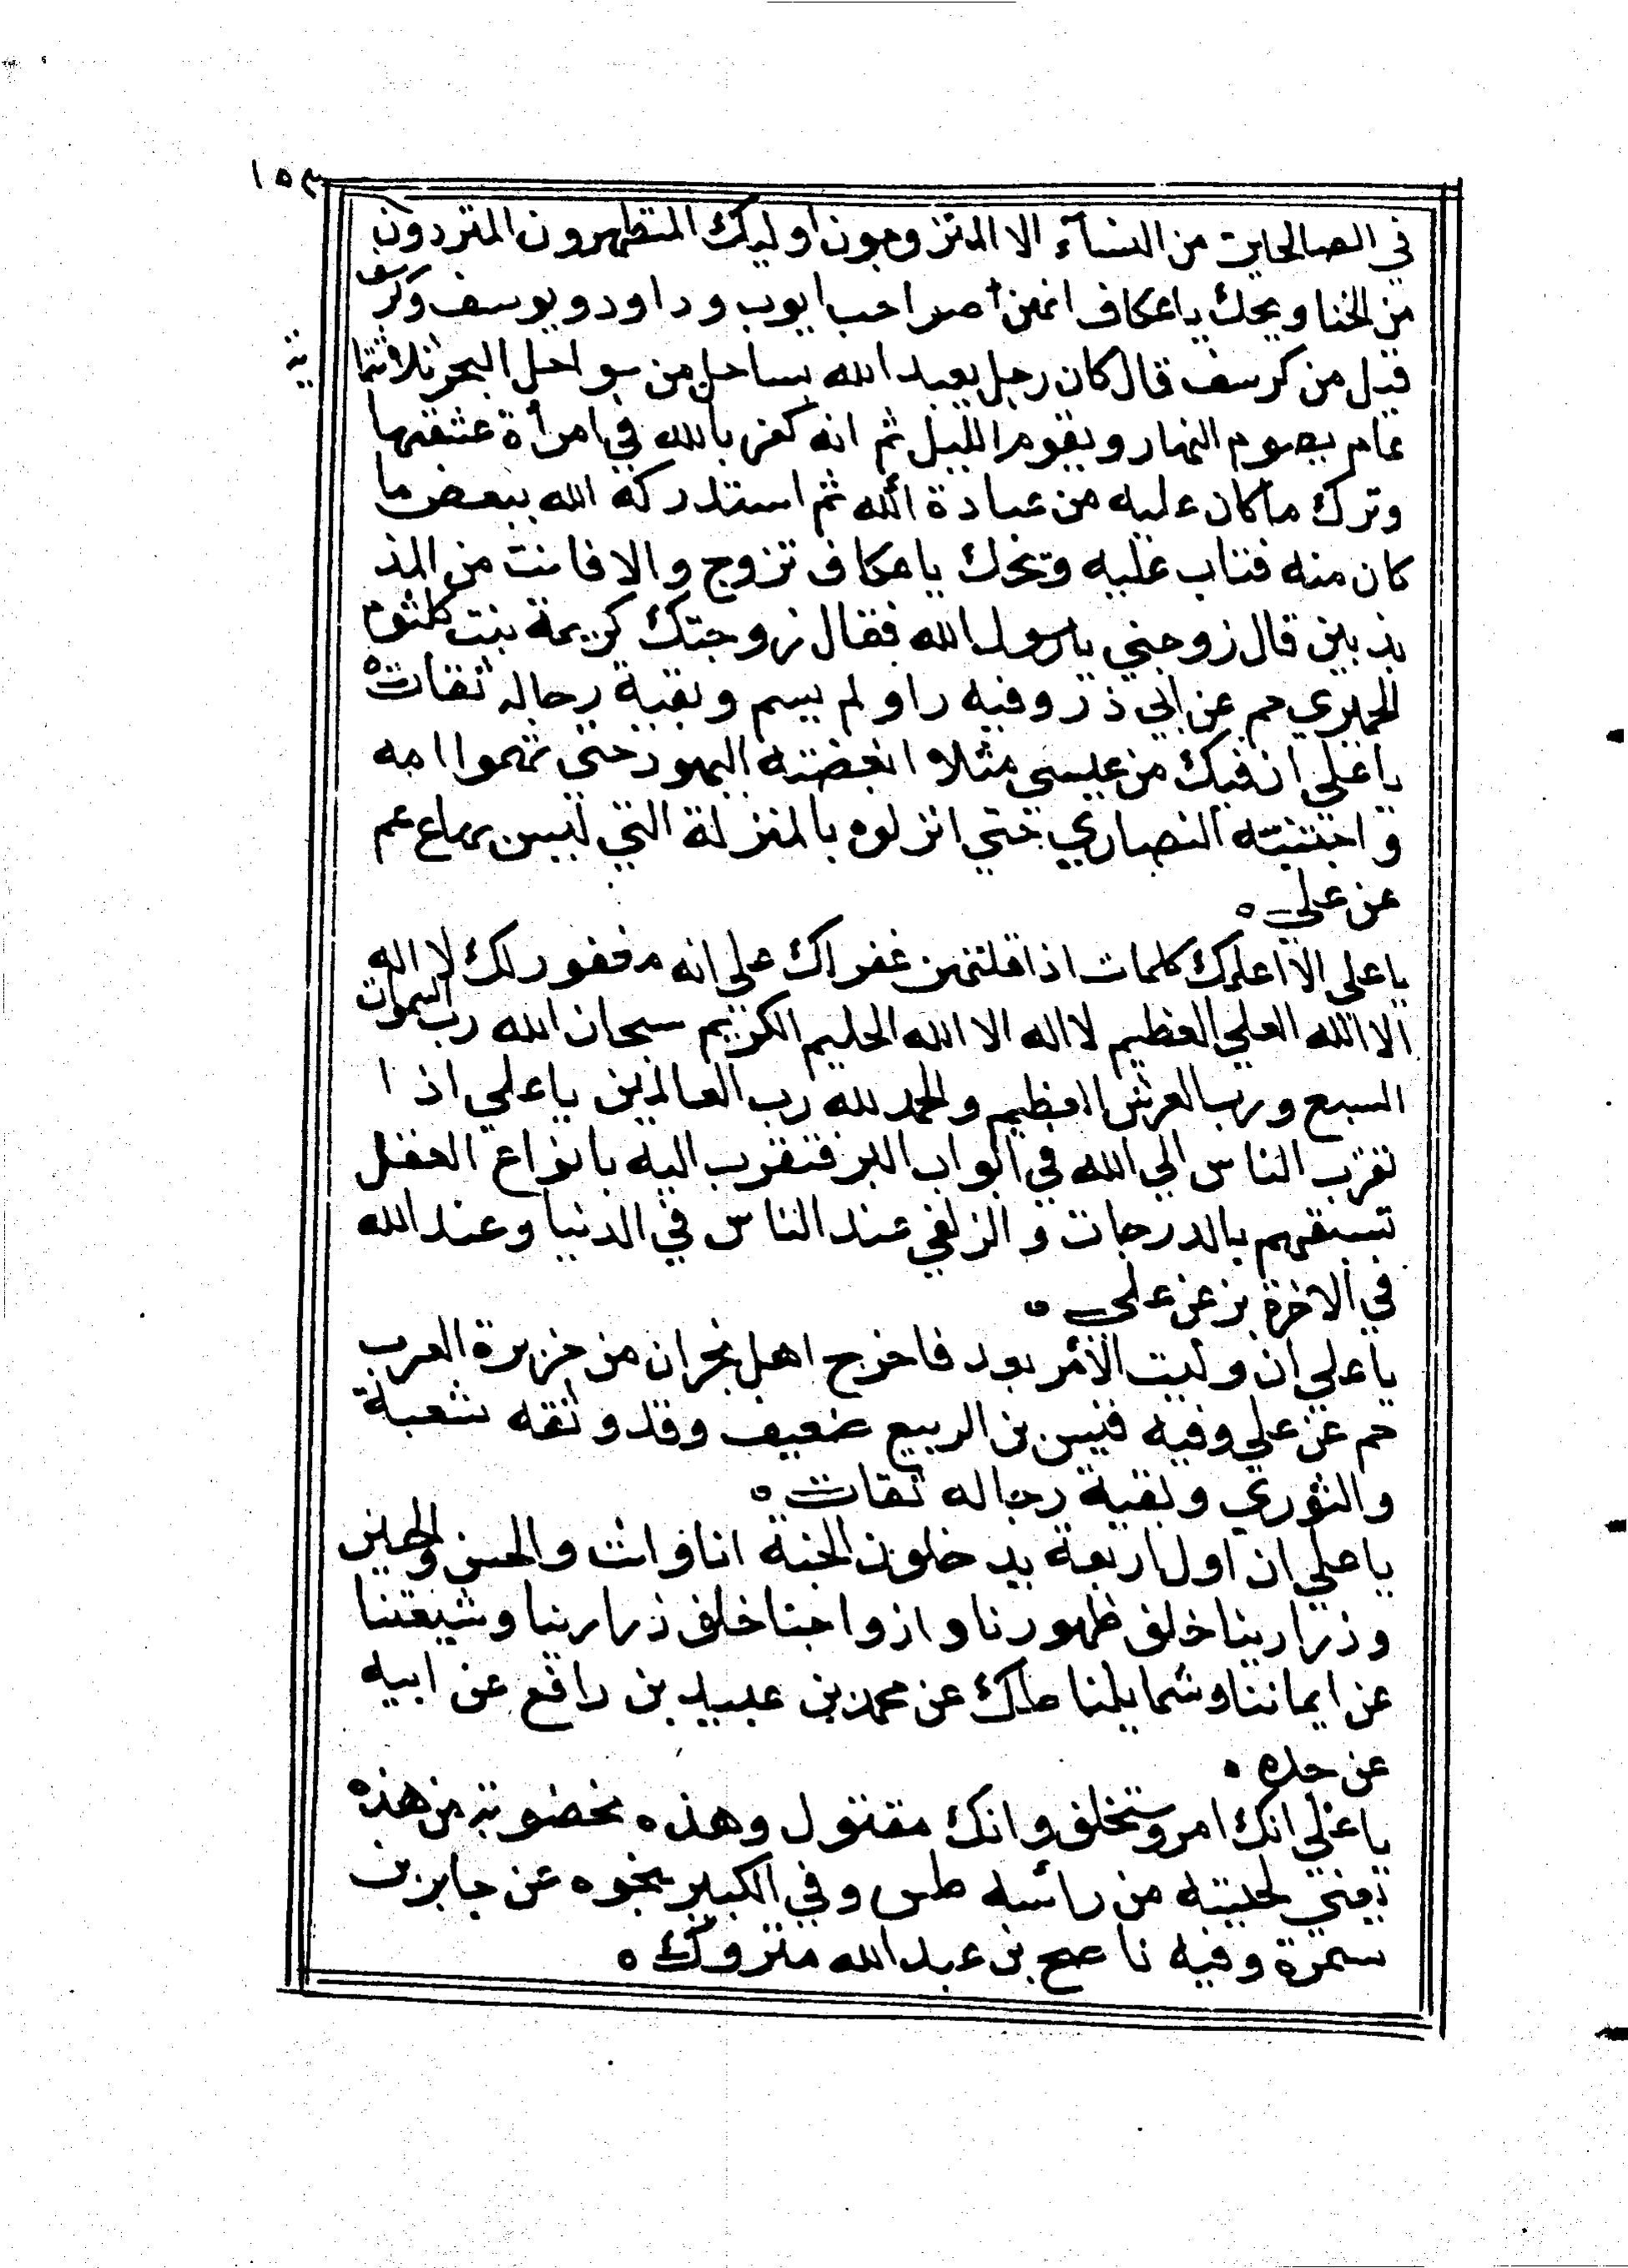 ١٥٣
في الصالحين من النساء الا المتزوجون اوليك المتطهرون المتردون
من الخنا ويحك ياعكاف انهن صواحب ايوب وداود ويوسف وكرسف
قيل من كرسف قال كان رجل يعبد الله بساحل من سواحل البحر ثلاثمائة
عام يصوم النهار ويقوم الليل ثم انه كفر بالله في امرأة عشقها
وترك ماكان عليه من عبادة الله ثم استدركه الله ببعض ما
كان منه فتاب عليه ويحك ياعكاف تزوج والا فانت من المذ
بذبين قال زوجني يارسول الله فقال زوجتك كريمة بنت كلثوم
الحميري حم عن ابي ذر وفيه راو لم يسم وبقية رجاله ثقات ه
ياعلي ان فيك من عيسي مثلا ابغضته اليهود حتي بهتوا امه
واحبته النصاري حتي انزلوه بالمنزلة التي ليس بها ع عم
عن علي ه
ياعلي الا اعلمك كلمات اذا قلتهن غفر لك علي انه مغفور لك لا اله
الا الله العلي العظيم لا اله الا الله الحليم الكريم سبحان الله رب السموات
السبع ورب العرش العظيم والحمد لله رب العالمين ياعلي اذا
تقرب الناس الي الله في ابواب البر فتقرب اليه بانواع العقل
تسبقهم بالدرجات والزلفي عند الناس في الدنيا وعند الله
في الاخرة بز عن علي ه
ياعلي ان وليت الأمر بعد فاخرج اهل نجران من جزيرة العرب
حم عن علي وفيه قيس بن الربيع ضعيف وقد وثقه شعبة
والثوري وبقية رجاله ثقات ه
ياعلي ان اول اربعة يدخلون الجنة انا وانت والحسن والحسين
وذرارينا خلف ظهورنا وازواجنا خلف ذرارينا وشيعتنا
عن ايماننا وشمايلنا طك عن محمد بن عبيد بن رافع عن ابيه
عن جده ه
ياعلي انك امرو مستخلف وانك مقتول وهذه مخضوبة من هذه
يعني لحيته من رأسه طس وفي الكبير نحوه عن جابر بن
سمرة وفيه ناصح بن عبد الله متروك ه